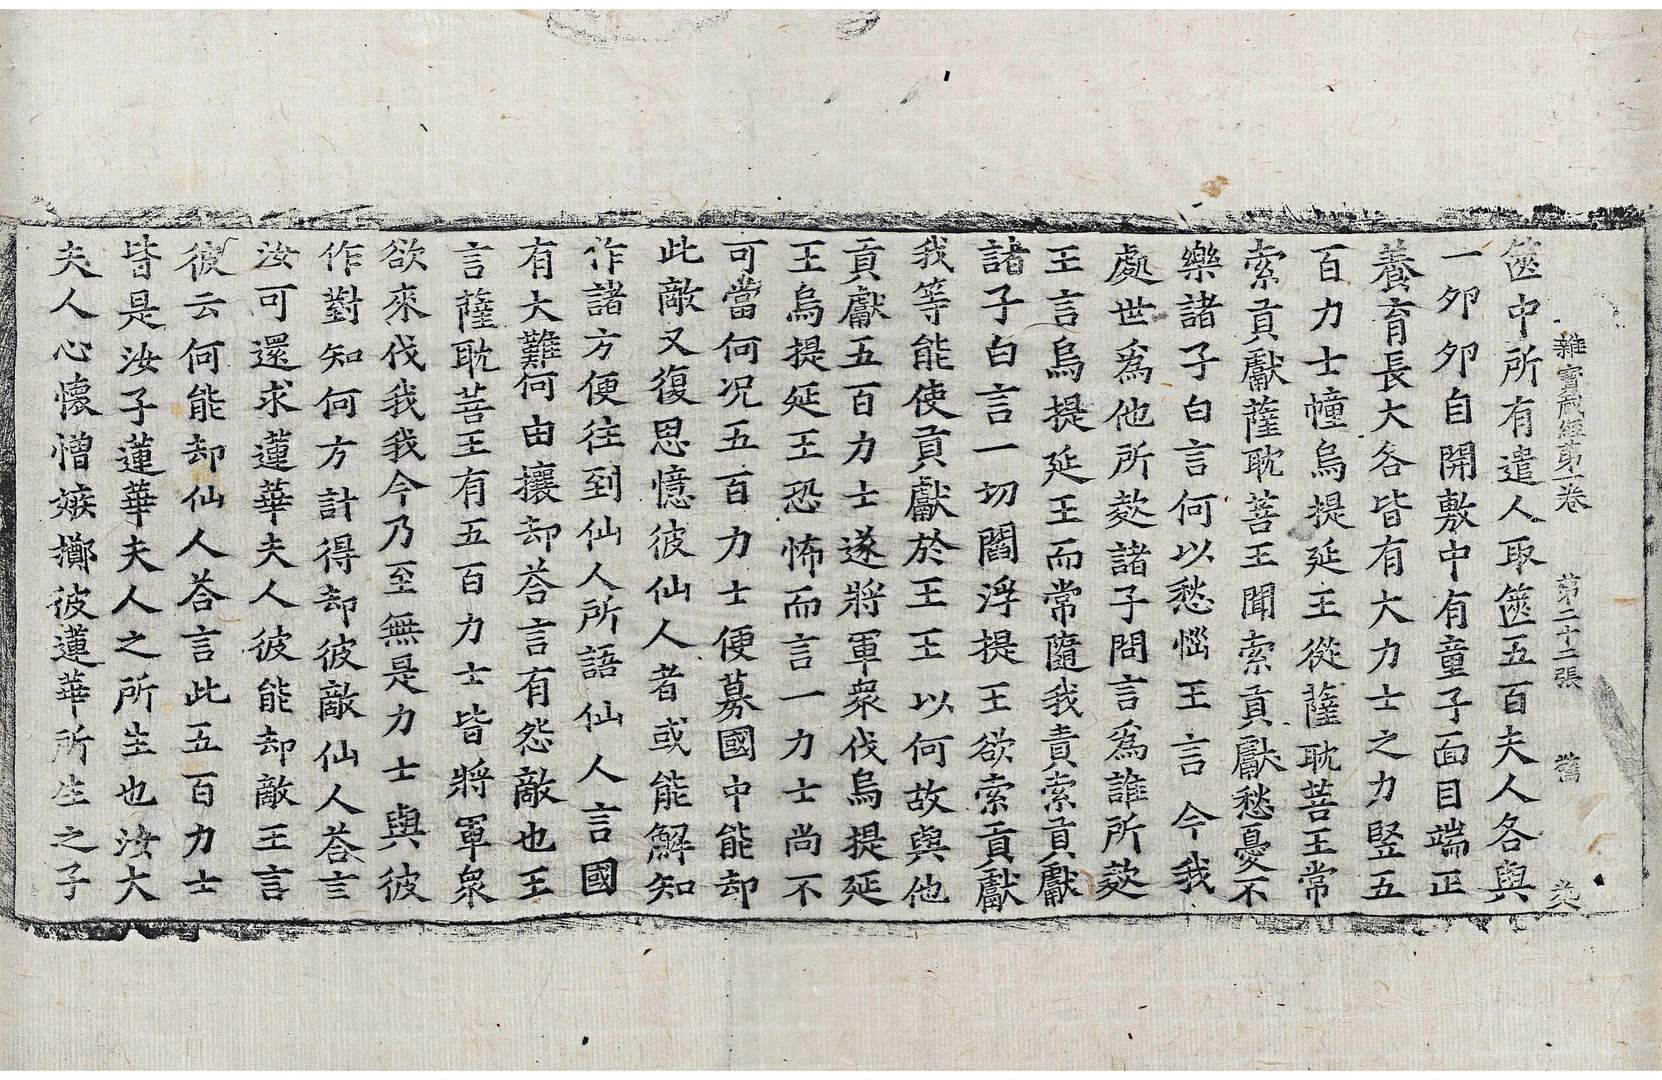 雜寶藏經第一卷 第二十二張 驚
篋中所有遣人取篋五百夫人各與
一夘夘自開敷中有童子面目端正
養育長大各皆有大力士之力竪五
百力士幢烏提延王從薩耽菩王常
索貢獻薩耽菩王聞索貢獻愁憂不
樂諸子白言何以愁惱王言今我
處世爲他所欺諸子問言爲誰所欺
王言烏提延王而常隨我責索貢獻
諸子白言一切閻浮提王欲索貢獻
我等能使貢獻於王王以何故與他
貢獻五百力士遂將軍衆伐烏提延
王烏提延王恐怖而言一力士尚不
可當何況五百力士便募國中能却
此敵又復思憶彼仙人者或能解知
作諸方便往到仙人所語仙人言國
有大難何由攘却荅言有怨敵也王
言薩耽菩王有五百力士皆將軍衆
欲來伐我我今乃至無是力士與彼
作對知何方計得却彼敵仙人荅言
汝可還求蓮華夫人彼能却敵王言
彼云何能却仙人荅言此五百力士
皆是汝子蓮華夫人之所生也汝大
夫人心懷憎嫉擲彼蓮華所生之子